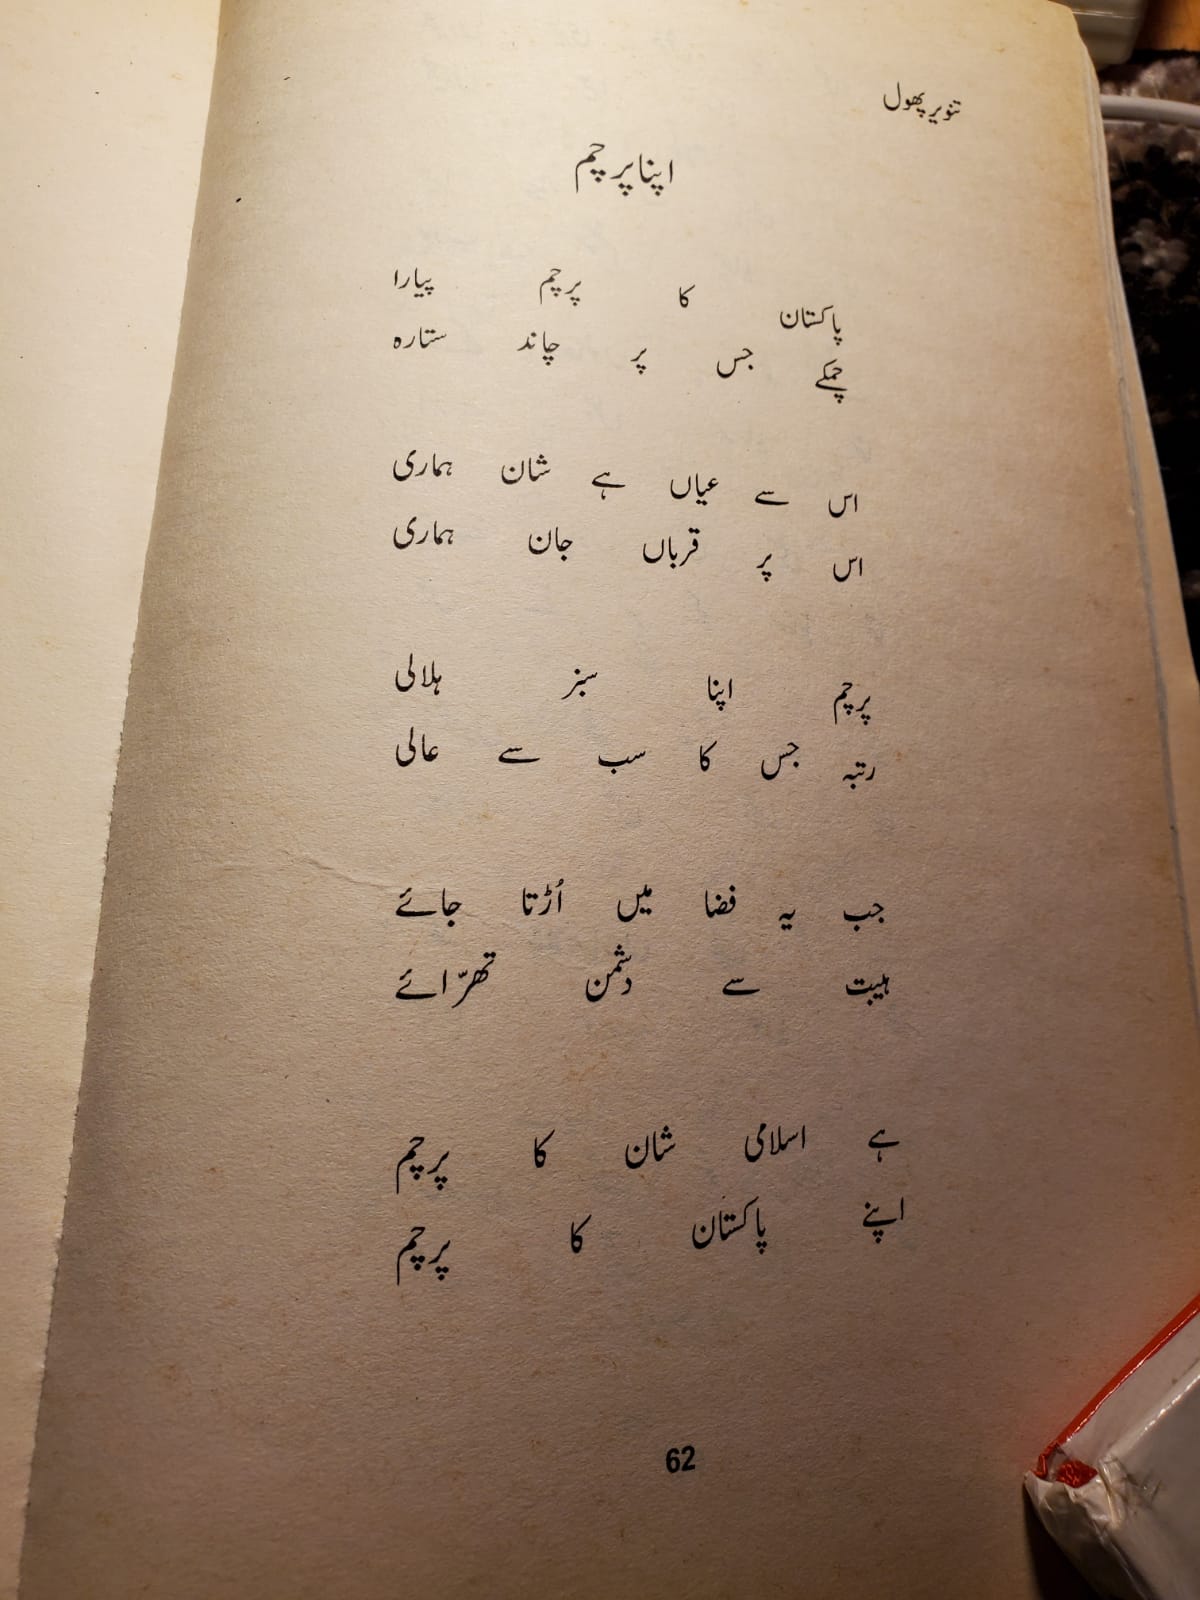 تنویر پھول
اپنا پرچم
پاکستان کا پرچم پیارا
چمکے جس پر چاند ستارہ
اس سے عیاں ہے شان ہماری
اس پر قرباں جان ہماری
پرچم اپنا سبز ہلالی
رتبہ جس کا سب سے عالی
جب یہ فضا میں اُڑتا جائے
ہیبت سے دشمن تھرّائے
ہے اسلامی شان کا پرچم
اپنے پاکستان کا پرچم
62